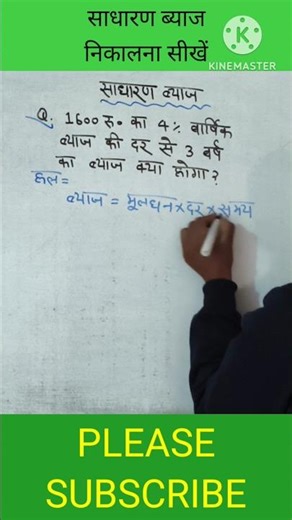 साधारण ब्याज
निकालना सीखें
KINEMASTER
साधारण ब्याज
Q. 1600 रु० का 4% वार्षिक
ब्याज की दर से 3 वर्ष
का ब्याज क्या होगा?
हल =
ब्याज = मूलधन × दर × समय
PLEASE
SUBSCRIBE